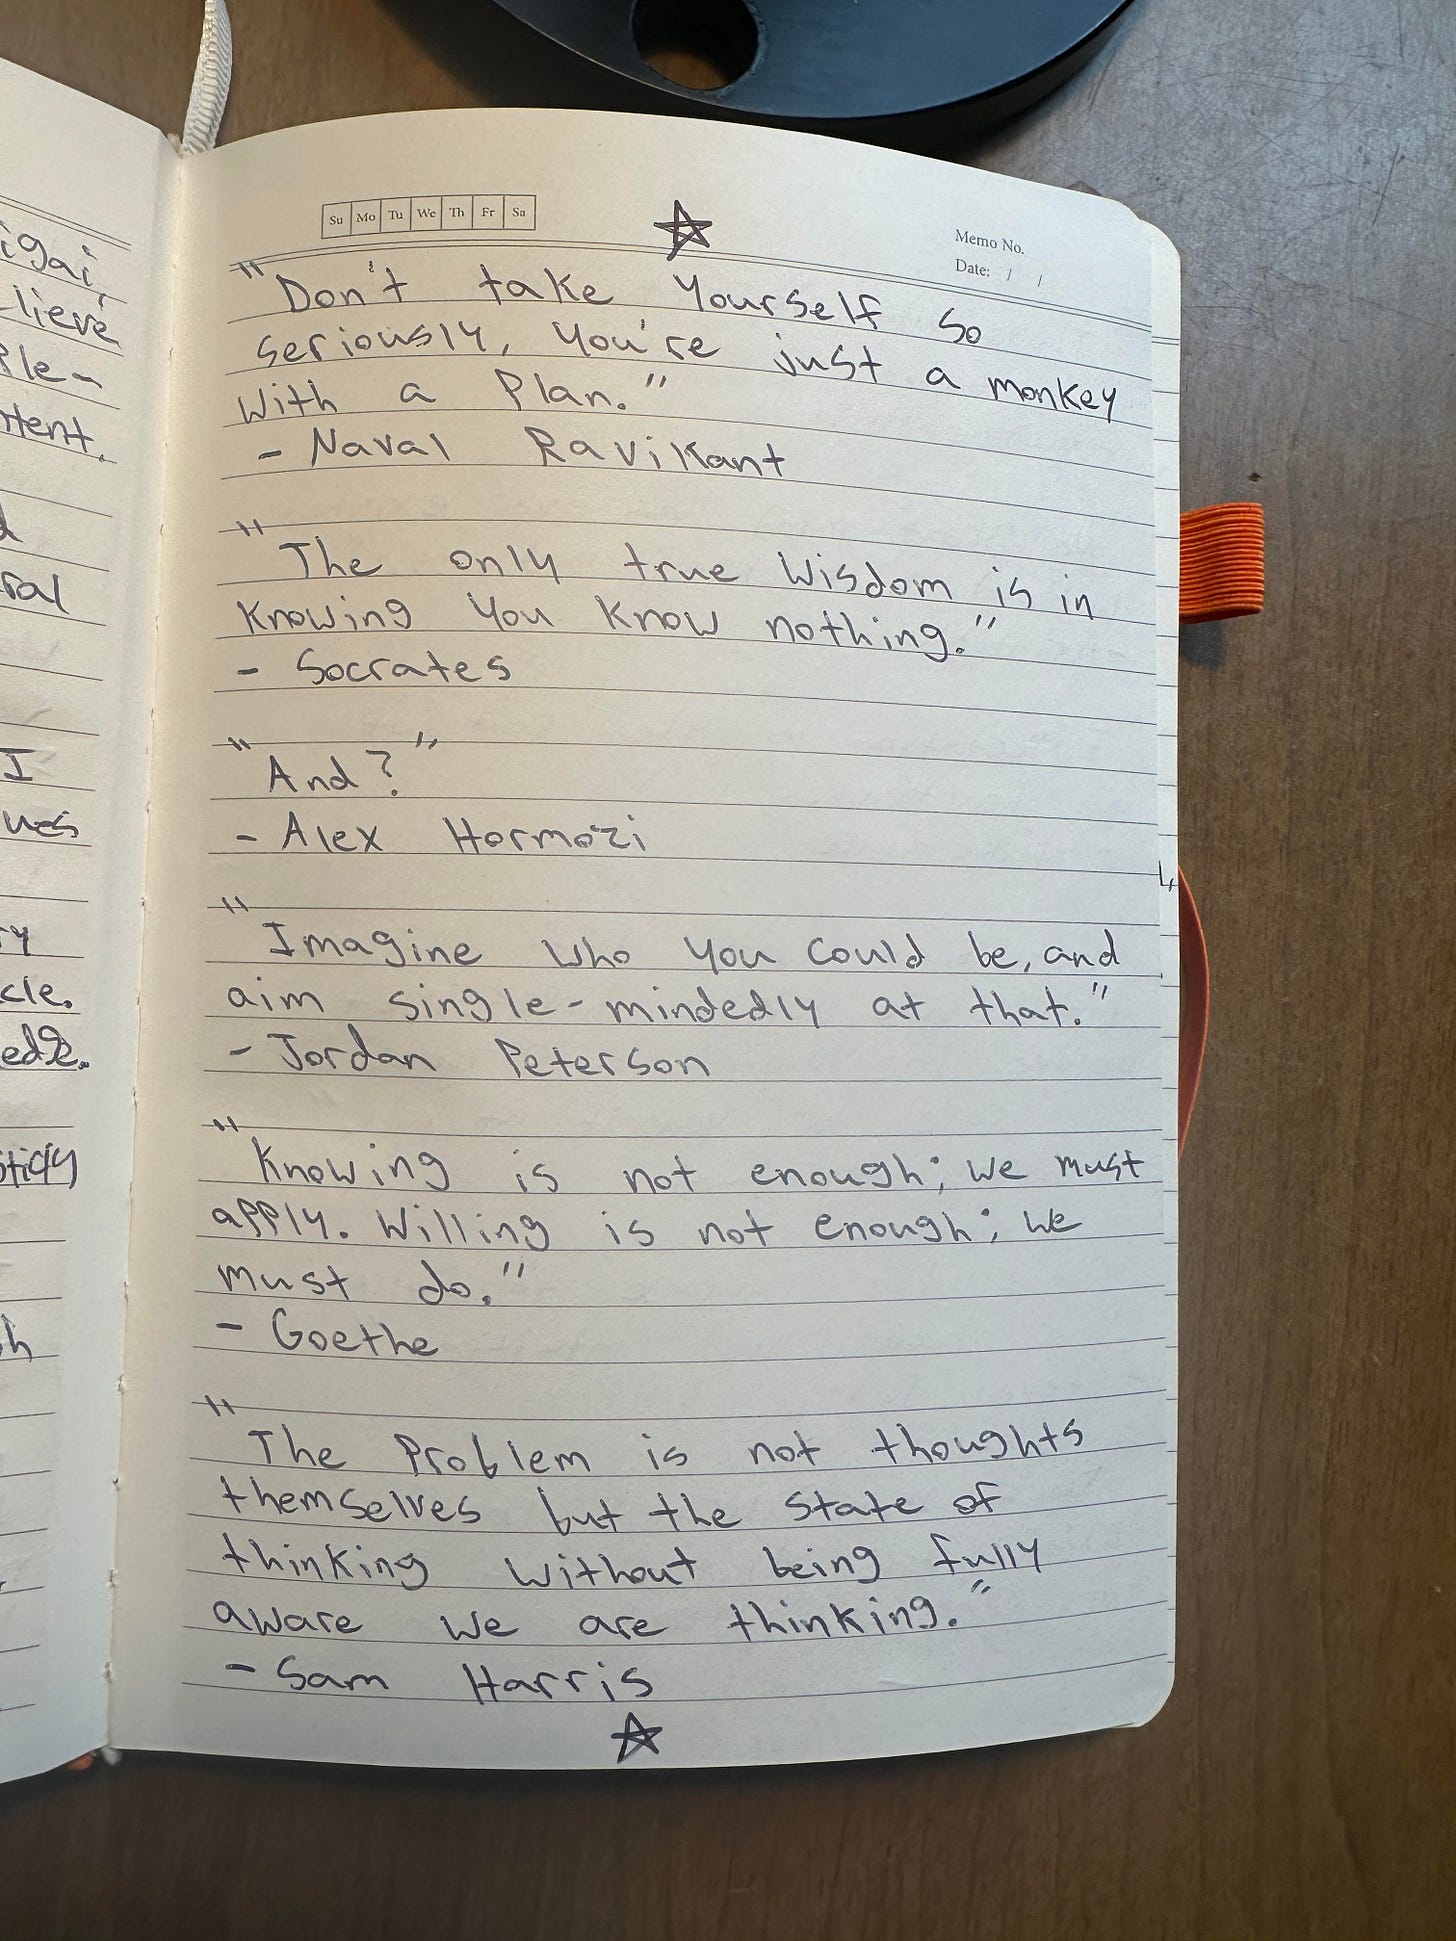 igai,
lieve
ple-
tent.
ral
I
ues
ry
cle.
edge.
h
Su Mo Tu We Th Fr Sa
Memo No.
Date: / /
"Don't take yourself so
seriously, you're just a monkey
with a plan."
- Naval Ravikant
"The only true wisdom is in
knowing you know nothing."
- Socrates
"And?"
- Alex Hormozi
"Imagine who you could be, and
aim single-mindedly at that."
- Jordan Peterson
"Knowing is not enough; we must
apply. Willing is not enough; we
must do."
- Goethe
"The problem is not thoughts
themselves but the state of
thinking without being fully
aware we are thinking."
- Sam Harris